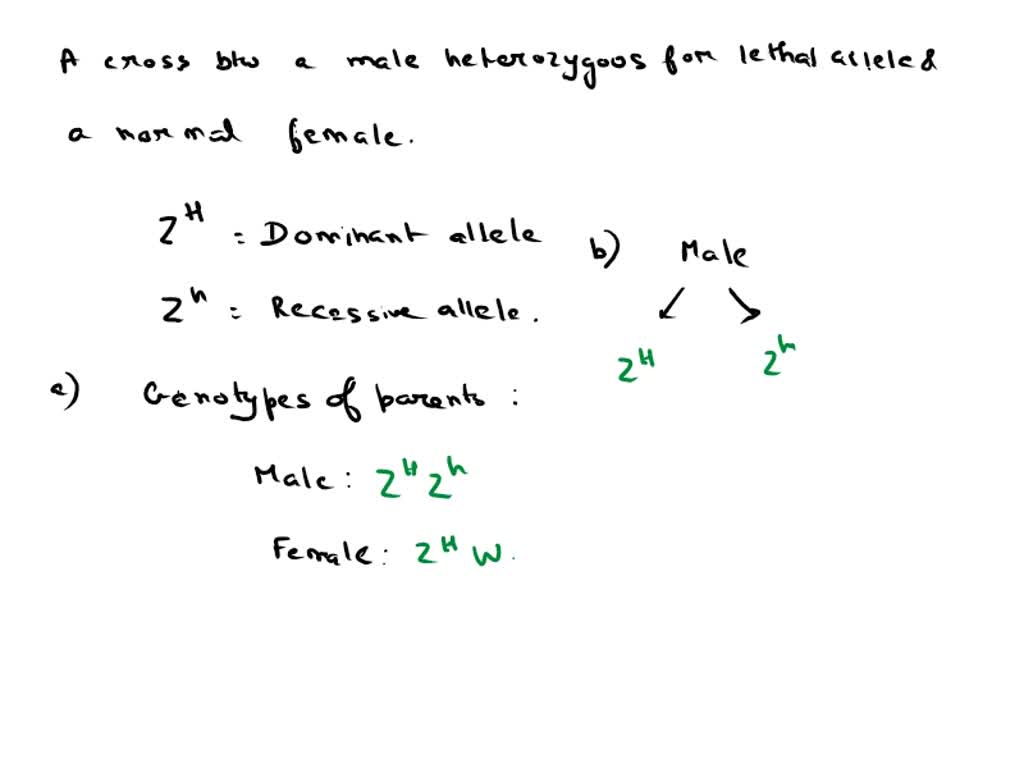 A cross btw a male heterozygous for lethal allele &
a normal female.
Z^H = Dominant allele
Z^h = Recessive allele.
a) Genotypes of parents :
Male : Z^H Z^h
Female : Z^H W.
b) Male
Z^H Z^h